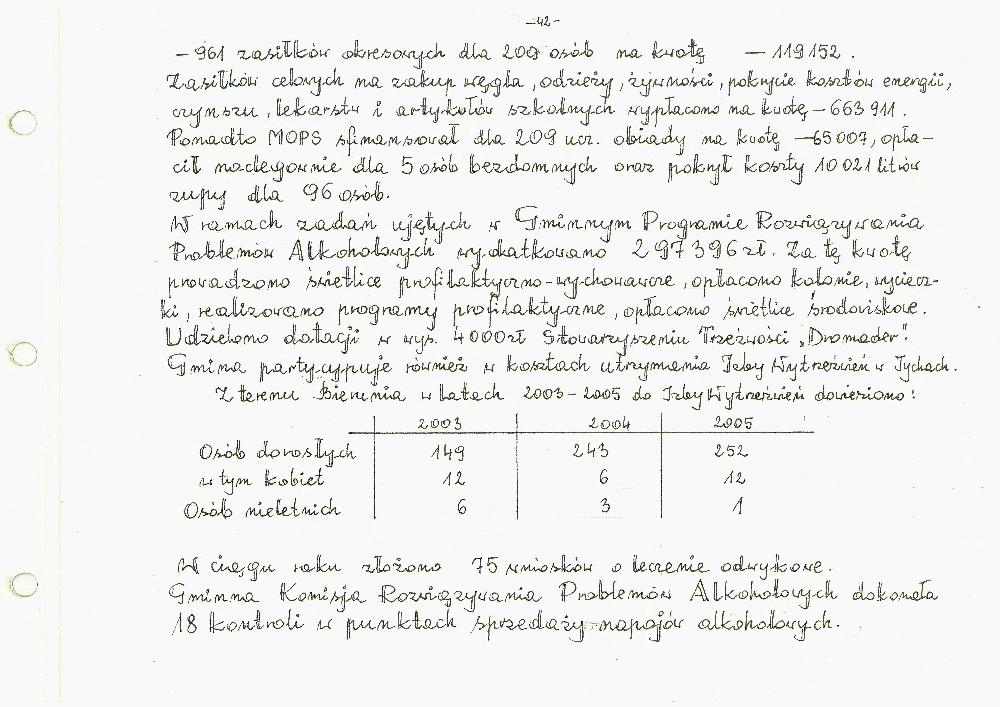 -42-
- 961 zasiłków okresowych dla 209 osób na kwotę - 119152.
Zasiłków celowych na zakup węgla, odzieży, żywności, pokrycie kosztów energii,
czynszu, lekarstw i artykułów szkolnych wypłacono na kwotę - 663 911.
Ponadto MOPS sfinansował dla 209 ucz. obiady na kwotę - 65 007, opła-
cił noclegownie dla 5 osób bezdomnych oraz pokrył koszty 10 021 litrów
zupy dla 96 osób.
W ramach zadań ujętych w Gminnym Programie Rozwiązywania
Problemów Alkoholowych wydatkowano 297 396 zł. Za tę kwotę
prowadzono świetlice profilaktyczno-wychowawcze, opłacono kolonie, wyciecz-
ki, realizowano programy profilaktyczne, opłacono świetlice środowiskowe.
Udzielono dotacji w wys. 4000 zł Stowarzyszeniu Trzeźwości "Dromader".
Gmina partycypuje również w kosztach utrzymania Izby Wytrzeźwień w Tychach.
Z terenu Bierunia w latach 2003-2005 do Izby Wytrzeźwień dowieziono:
2003 2004 2005
Osób dorosłych 149 243 252
w tym kobiet 12 6 12
Osób nieletnich 6 3 1
W ciągu roku złożono 75 wniosków o leczenie odwykowe.
Gminna Komisja Rozwiązywania Problemów Alkoholowych dokonała
18 kontroli w punktach sprzedaży napojów alkoholowych.